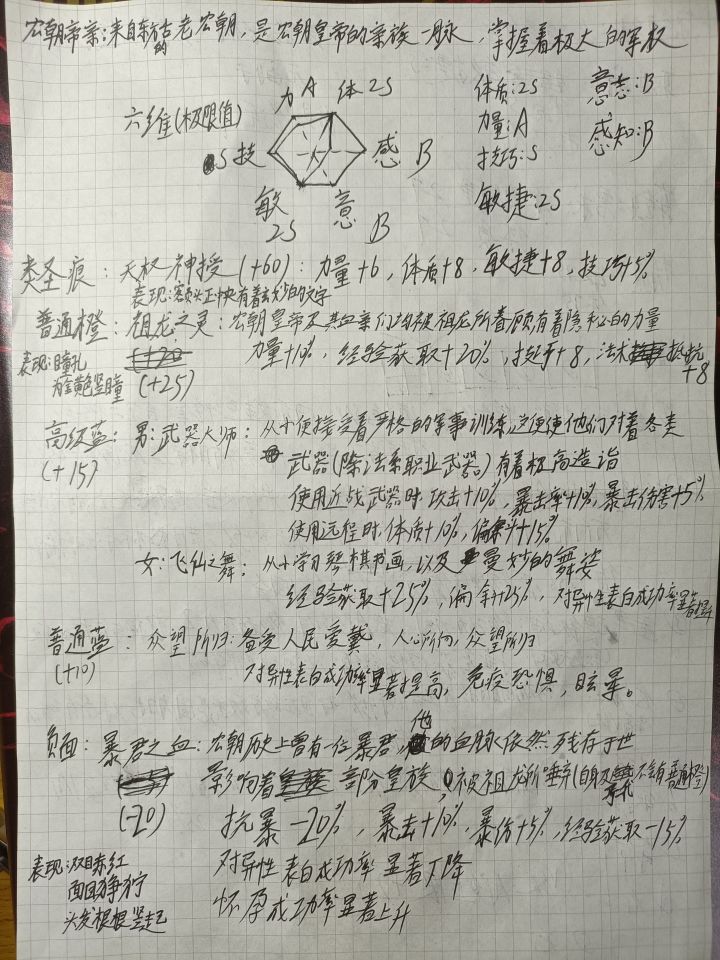 宏朝帝亲:来自东方古老的宏朝,是宏朝皇帝的亲族一脉,掌握着极大的军权
六维(极限值)
力A 体2S
S技 感 B
敏 意
2S B
体质:2S 意志:B
力量:A 感知:B
技巧:S
敏捷:2S
类圣痕:天权神授(+60):力量+6,体质+8,敏捷+8,技巧+5%
表现:额头正中央有着玄妙的文字
普通橙:祖龙之灵:宏朝皇帝及其血亲们均被祖龙所眷顾有着隐秘的力量
表现:瞳孔
为金黄色竖瞳
(+25)
力量+10%,经验获取+20%,技巧+8,法术抵抗
+8
高级蓝:男:武器大师:从小便接受着严格的军事训练,这便使他们对着各类
(+15)
武器(除法系职业武器)有着极高造诣
使用近战武器时,攻击+10%,暴击率+10%,暴击伤害+5%
使用远程时,体质+10%,偏斜+15%
女:飞仙之舞:从小学习琴棋书画,以及曼妙的舞姿
经验获取+25%,偏斜+25%,对异性表白成功率显著提升
普通蓝:众望所归:备受人民爱戴,人心所向,众望所归
(+10)
对异性表白成功率显著提高,免疫恐惧,眩晕。
负面:暴君之血:宏朝历史上曾有一位暴君,他的血脉依然残存于世
(-20)
影响着部分皇族,被祖龙所唾弃(自身及子代不含有普通橙)
抗暴-20%,暴击+10%,暴伤+5%,经验获取-15%
对异性表白成功率显著下降
怀孕成功率显著上升
表现:双目赤红
面目狰狞
头发根根竖起